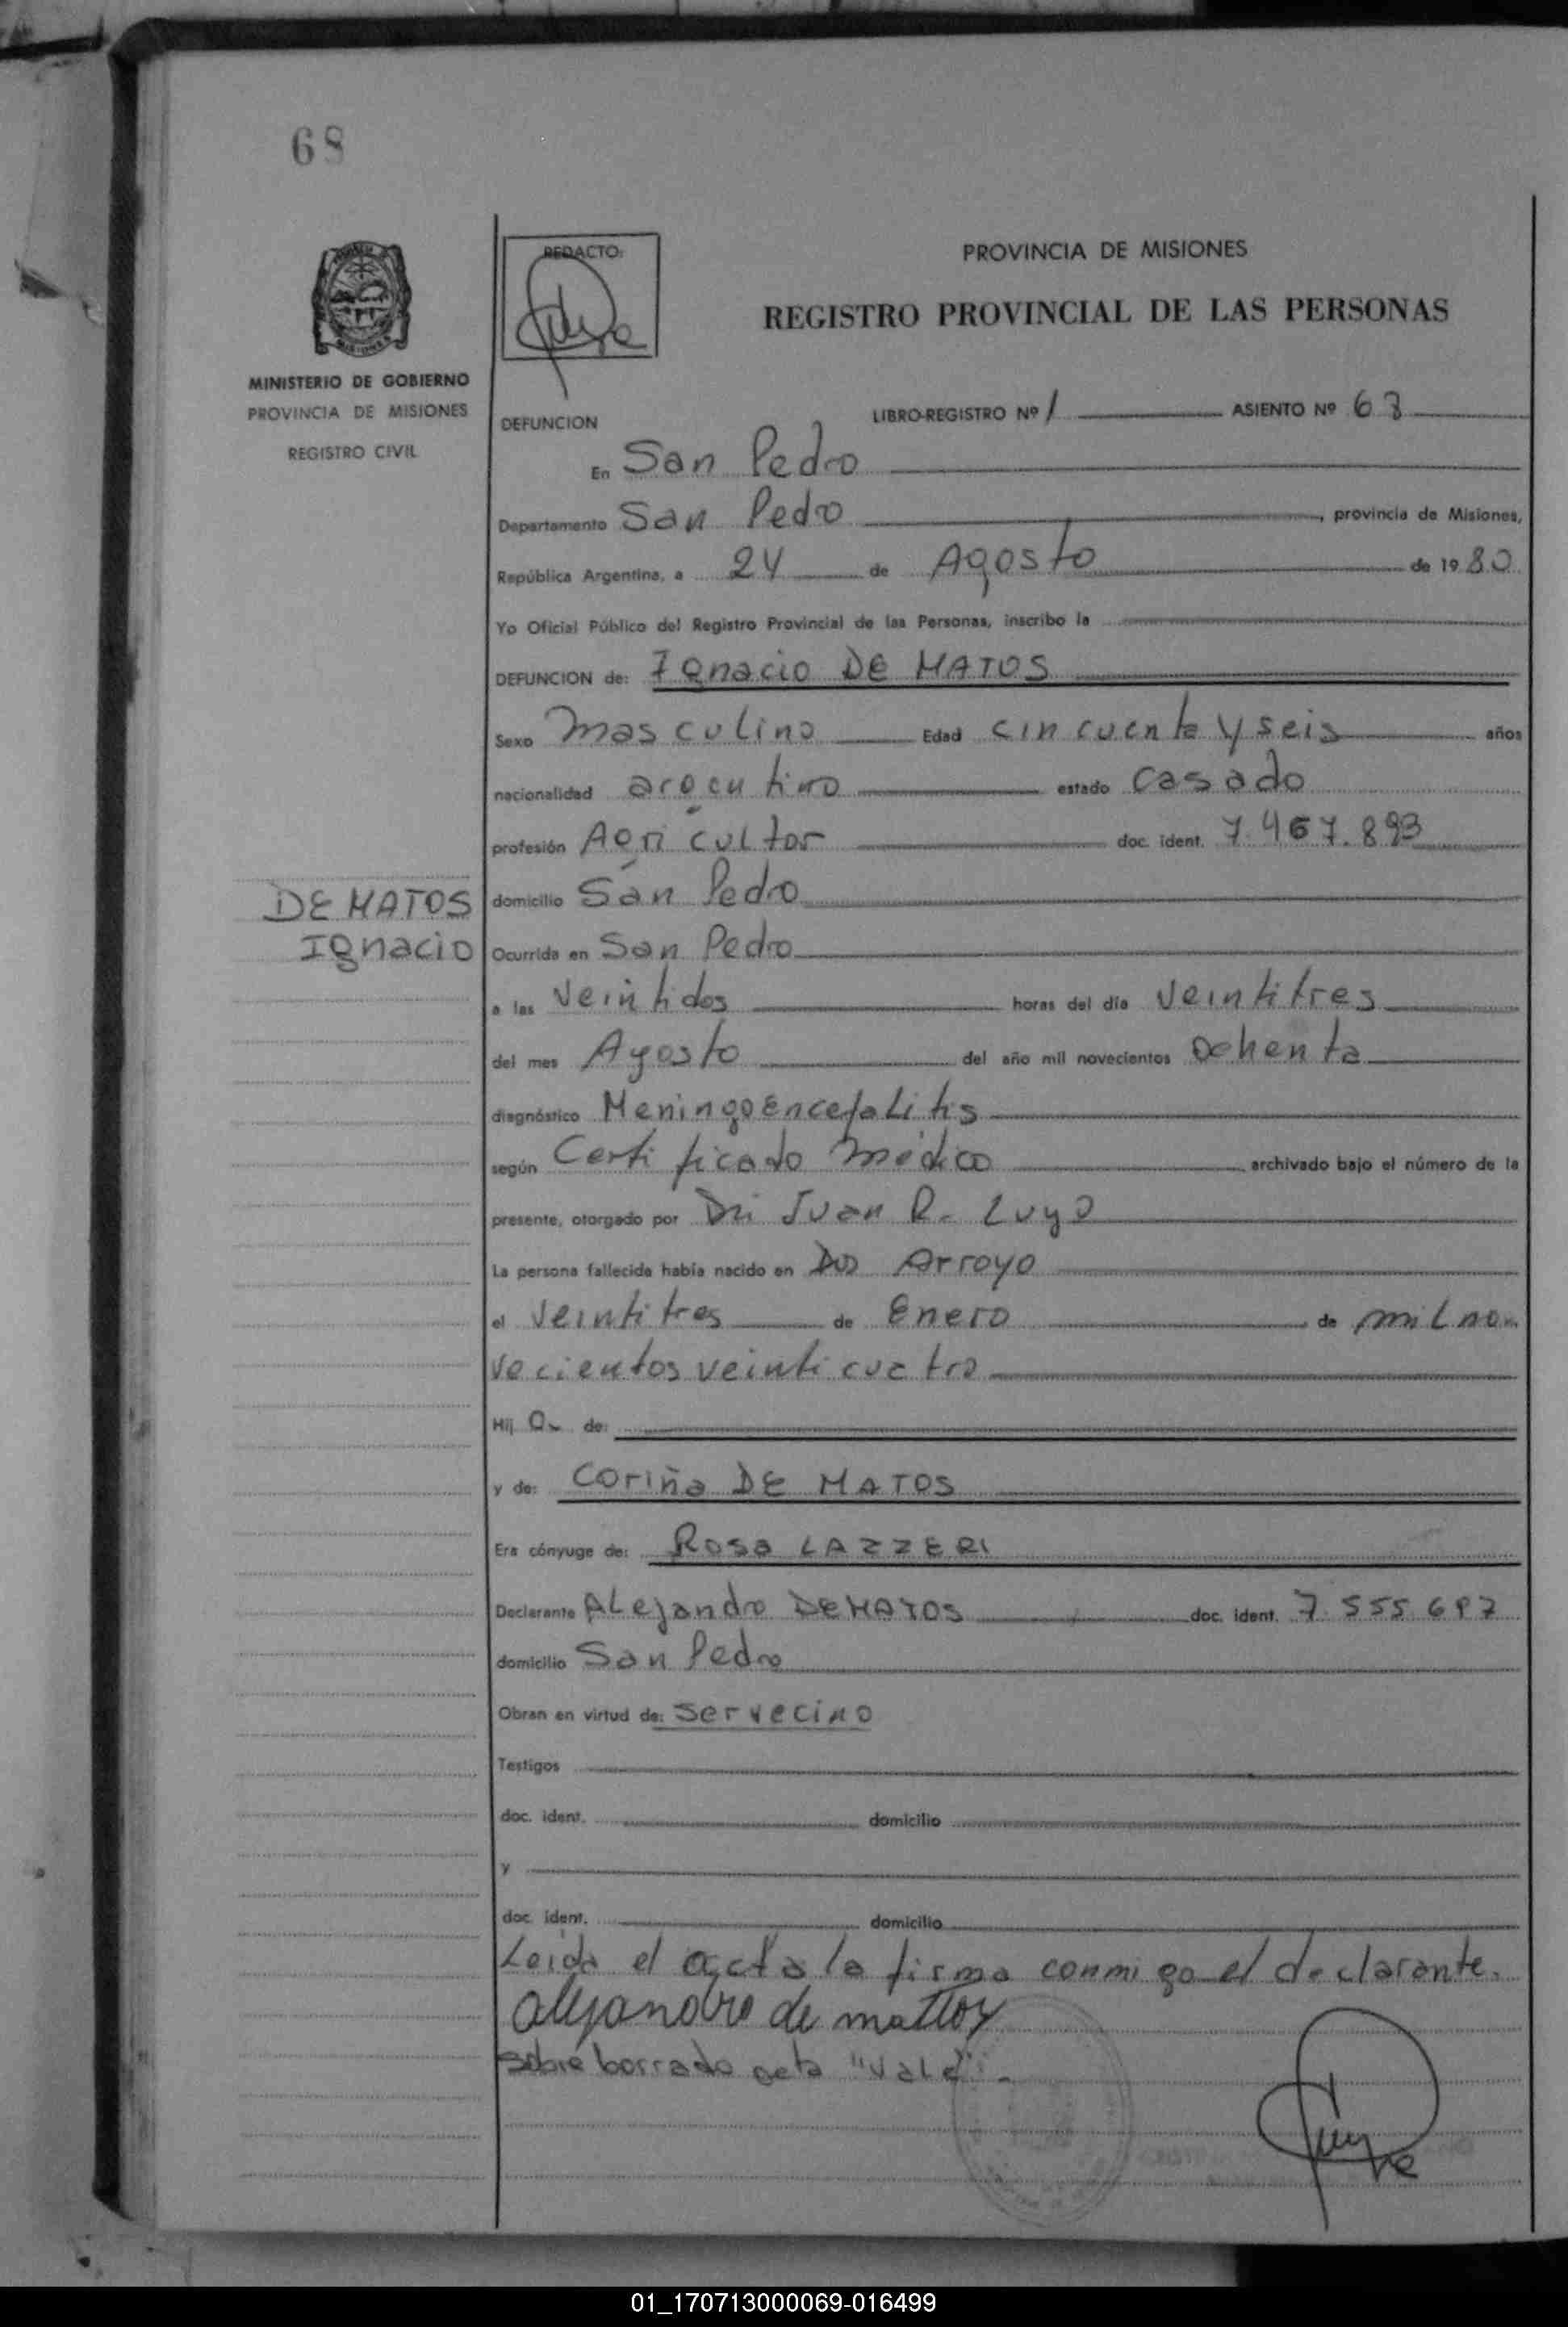 68
REDACTO:
PROVINCIA DE MISIONES
REGISTRO PROVINCIAL DE LAS PERSONAS
MINISTERIO DE GOBIERNO
PROVINCIA DE MISIONES
REGISTRO CIVIL
DEFUNCION
LIBRO-REGISTRO Nº 1 ASIENTO Nº 68
En San Pedro
Departamento San Pedro, provincia de Misiones,
República Argentina, a 24 de Agosto de 1980
Yo Oficial Público del Registro Provincial de las Personas, inscribo la
DEFUNCION de: Ignacio DE MATOS
Sexo Masculino Edad cincuenta y seis años
nacionalidad argentino estado casado
profesión Agricultor doc. ident. 7.467.893
DE MATOS
Ignacio
domicilio San Pedro
Ocurrida en San Pedro
a las Veintidos horas del día Veintitres
del mes Agosto del año mil novecientos Ochenta
diagnóstico Meningoencefalitis
según Certificado Médico archivado bajo el número de la
presente, otorgado por Juan R. Luyo
La persona fallecida había nacido en Arroyo
el Veintitres de Enero de mil no
vecientos veinticuatro
Hijo de:
y de: Coriña DE MATOS
Era cónyuge de: Rosa LAZZERI
Declarante Alejandro DE MATOS doc. ident. 7.555.697
domicilio San Pedro
Obran en virtud de: ser vecino
Testigos
doc. ident. domicilio
y
doc. ident. domicilio
Leida el acta la firma conmigo el declarante.
alejandro de mattos
Sobre borrado acta "Vale".
01_170713000069-016499